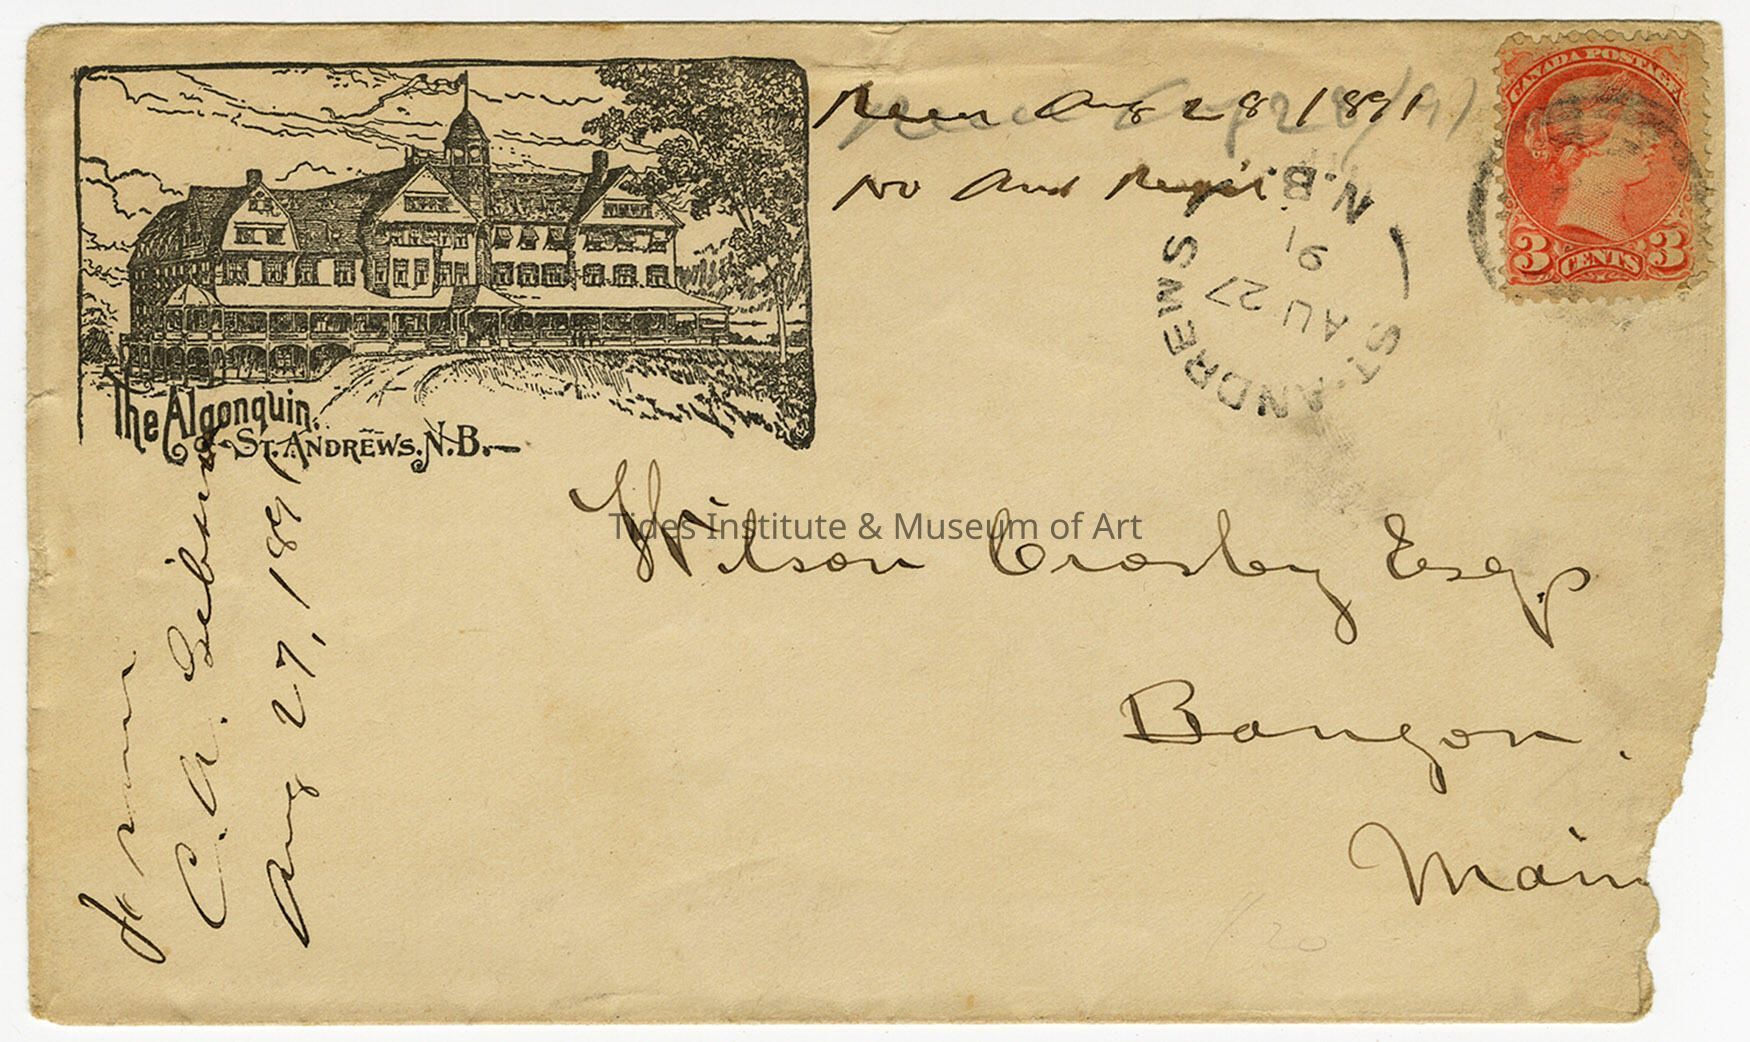 The Algonquin.
St. Andrews. N.B.
CANADA POSTAGE
3 CENTS 3
Aug 28 1891
No Ans Req'd.
ST. ANDREWS N.B.
AU 27
91
Tides Institute & Museum of Art
Wilson Crosby Esqr
Bangor.
Main
from
C. A. Gibson
Aug 27, 1891